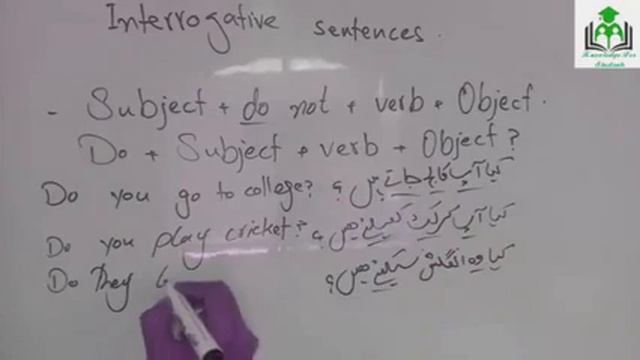 Interrogative sentences.
- Subject + do not + verb + Object.
Do + Subject + verb + Object?
Do you go to college? کیا آپ کالج جاتے ہیں؟
Do you play cricket? کیا آپ کرکٹ کھیلتے ہیں؟
Do They کیا وہ انگلش سیکھتے ہیں؟
Knowledge For
Students